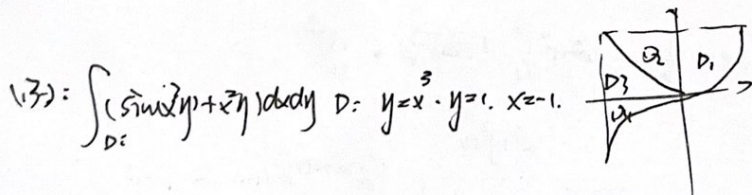 例: ∫_{Di} (sin(x³y)+x²y)dxdy D: y=x³. y=1. x=-1.
D₂ D₁
D3
D₄